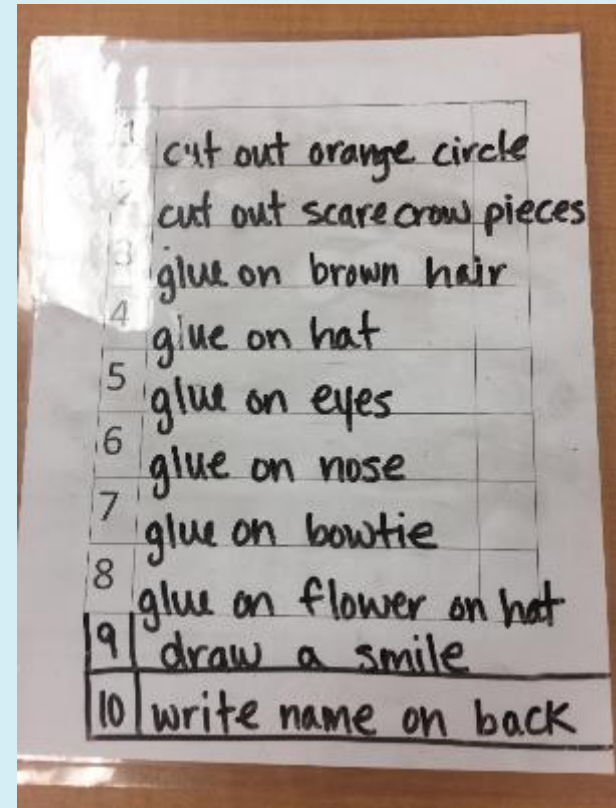 1 cut out orange circle
2 cut out scarecrow pieces
3 glue on brown hair
4 glue on hat
5 glue on eyes
6 glue on nose
7 glue on bowtie
8 glue on flower on hat
9 draw a smile
10 write name on back